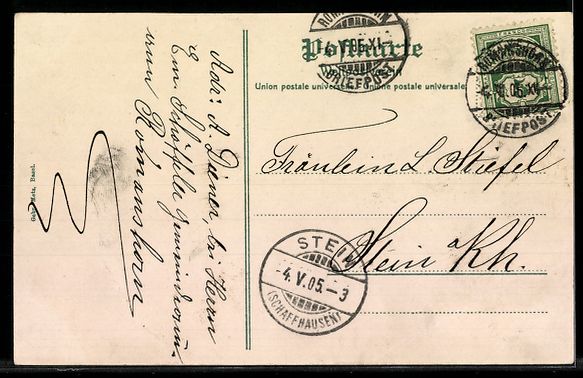 Postkarte
Union postale universelle. Unione postale universale.
Fräulein L. Stiefel
Stein a/Rh.
Adr: A. Diener, bei Herrn
Em. Schäffler
Romanshorn
Gebr. Metz, Basel.
ROMANSHORN
4.V.05.XI
BRIEFPOST
ROMANSHORN
4.V.05.XI
BRIEFPOST
STEIN
4.V.05.-3
(SCHAFFHAUSEN)